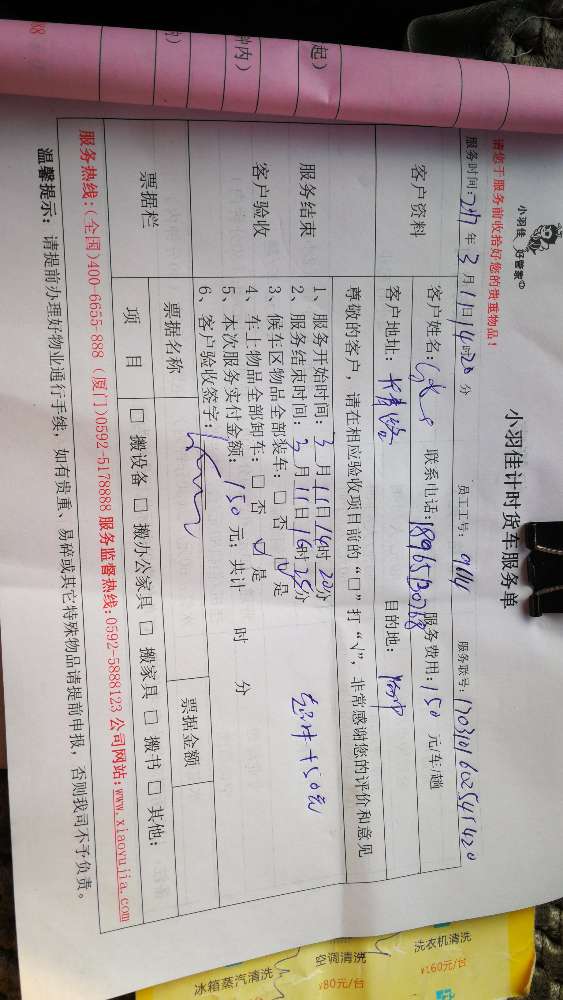 小羽佳 好管家
小羽佳计时货车服务单
请您于服务前收拾好您的贵重物品!
服务时间: 2017 年 3 月 11 日 14 时 20 分 员工工号: 服务联号:
客户资料
客户姓名: 联系电话: 服务费用: 150 元/车/趟
客户地址: 目的地:
尊敬的客户,请在相应验收项目前的“□”打“√”,非常感谢您的评价和意见
服务结束
客户验收
1、服务开始时间: 3 月 11 日 14 时 20 分
2、服务结束时间: 3 月 11 日 16 时 25 分
3、候车区物品全部装车: □ 否 □ 是
4、车上物品全部卸车: □ 否 □ 是
5、本次服务实付金额: 150 元; 共计 时 分
6、客户验收签字:
+50元
票据栏
票据名称 票据金额
项 目 □ 搬设备 □ 搬办公家具 □ 搬家具 □ 搬书 □ 其他:
服务热线:(全国)400-6655-888 (厦门)0592-5178888 服务监督热线:0592-5888123 公司网站:www.xiaoyujia.com
温馨提示: 请提前办理好物业通行手续,如有贵重、易碎或其它特殊物品请提前申报,否则我司不予负责。
起)
钟内)
洗衣机清洗
¥160元/台
空调清洗
¥80元/台
冰箱蒸汽清洗